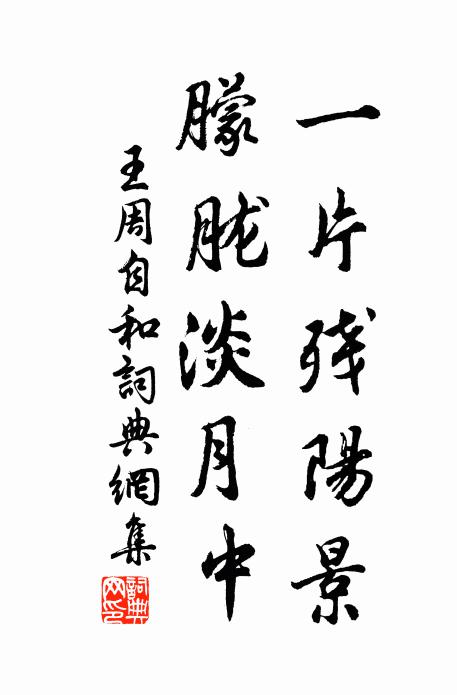 一片残陽景
朦胧淡月中
王周自和詞典網集
詞典網印